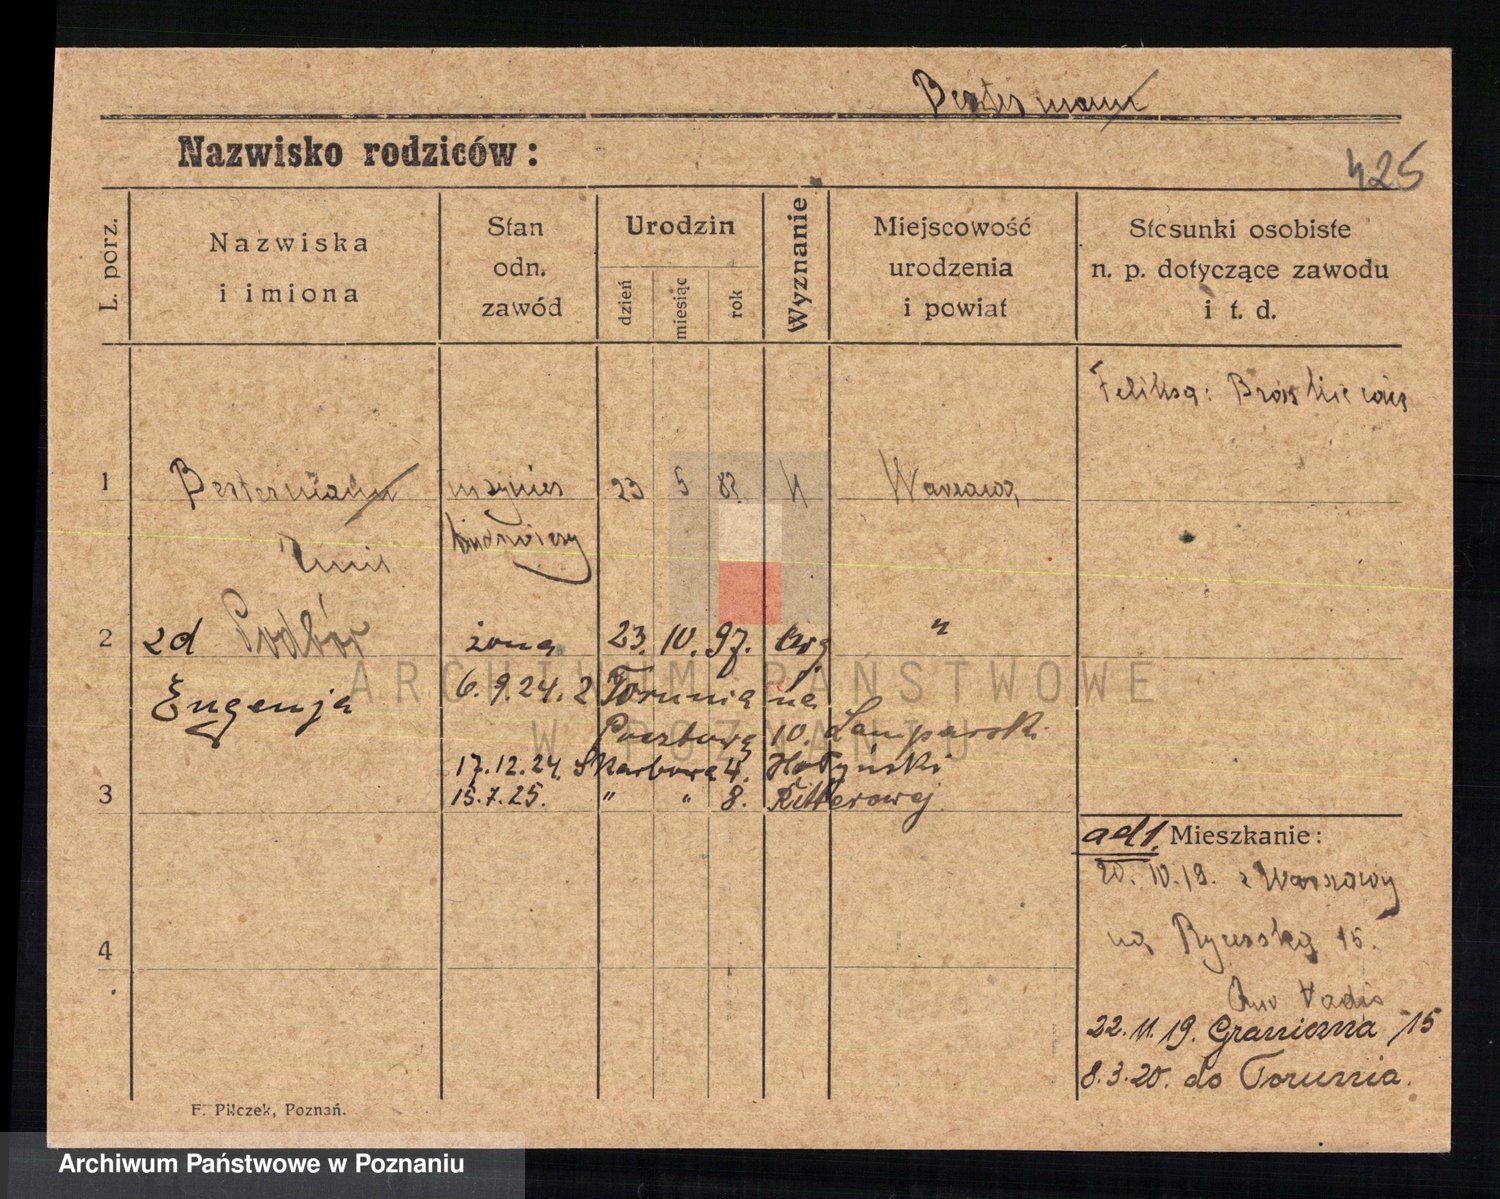 Bestermann
Nazwisko rodziców:
425
L. porz.
Nazwiska
i imiona
Stan
odn.
zawód
Urodzin
dzień
miesiąc
rok
Wyznanie
Miejscowość
urodzenia
i powiat
Stosunki osobiste
n. p. dotyczące zawodu
i t. d.
Feliksa:
1 Bestermann 23 5 Warszawa
2 zd Podbór żona 23. 10. 97. "
Eugenja 6.9.24. z Torunia na
Pocztową 10. Lamparski
17.12.24. Skarbowa 4. Hołyński
3 15.7.25. " " 8. Ritterowej
ad 1. Mieszkanie:
20. 10. 19. z Warszawy
na Rycerską 15.
Quo Vadis
4
22. 11. 19. Graniczna 15
8.3.20. do Torunia.
F. Pilczek, Poznań.
ARCHIWUM PAŃSTWOWE
W POZNANIU
Archiwum Państwowe w Poznaniu